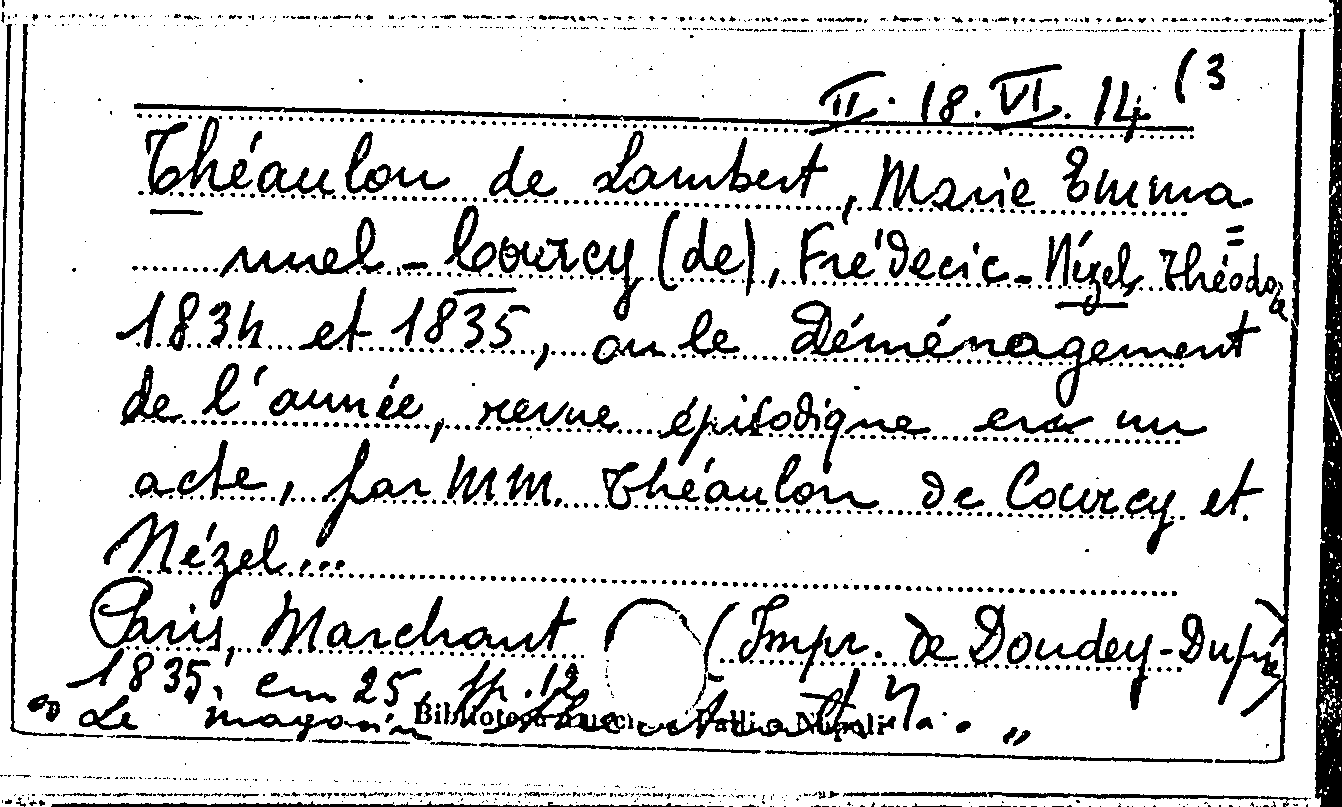 II. 18. VI. 14 (3
Théaulon de Lambert, Marie Emma=
nuel - Courcy (de), Frédéric - Nézel, Théodore
1834 et 1835, ou le Déménagement
de l'année, revue épisodique en un
acte, par MM. Théaulon de Courcy et
Nézel...
Paris, Marchant (Impr. de Dondey-Dupré)
1835, cm 25, pp. 12
" Le magasin "
Biblioteca Lucchesi Palli - Napoli